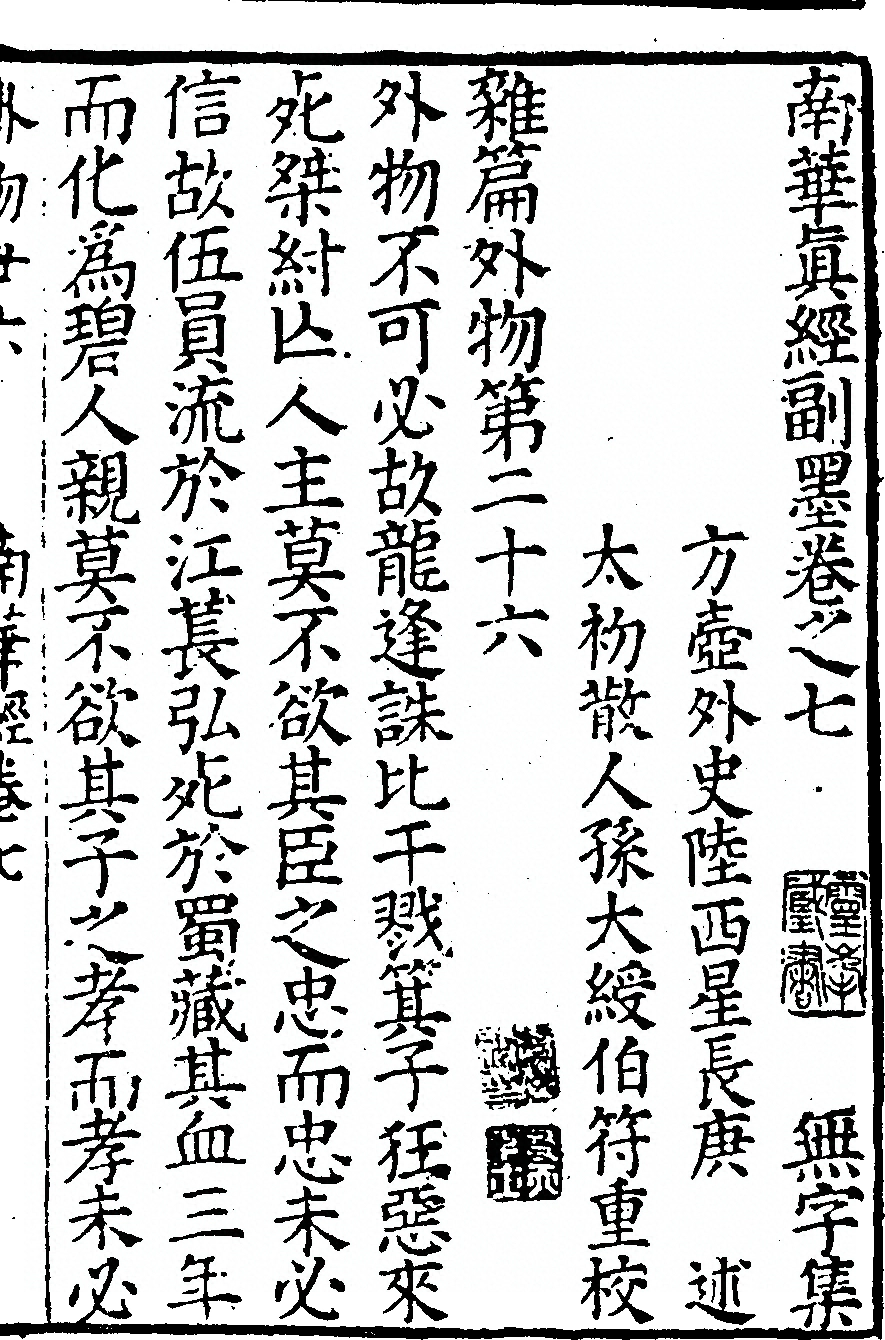 南華眞經副墨卷之七　無字集
方壺外史陸西星長庚　述
太㧾散人孫大綬伯符重校
雜篇外物第二十六
外物不可必故龍逢誅比干戮箕子狂惡來
死桀紂亡人主莫不欲其臣之忠而忠未必
信故伍員流於江萇弘死於蜀藏其血三年
而化爲碧人親莫不欲其子之孝而孝未必
外物廿六　南華經卷七